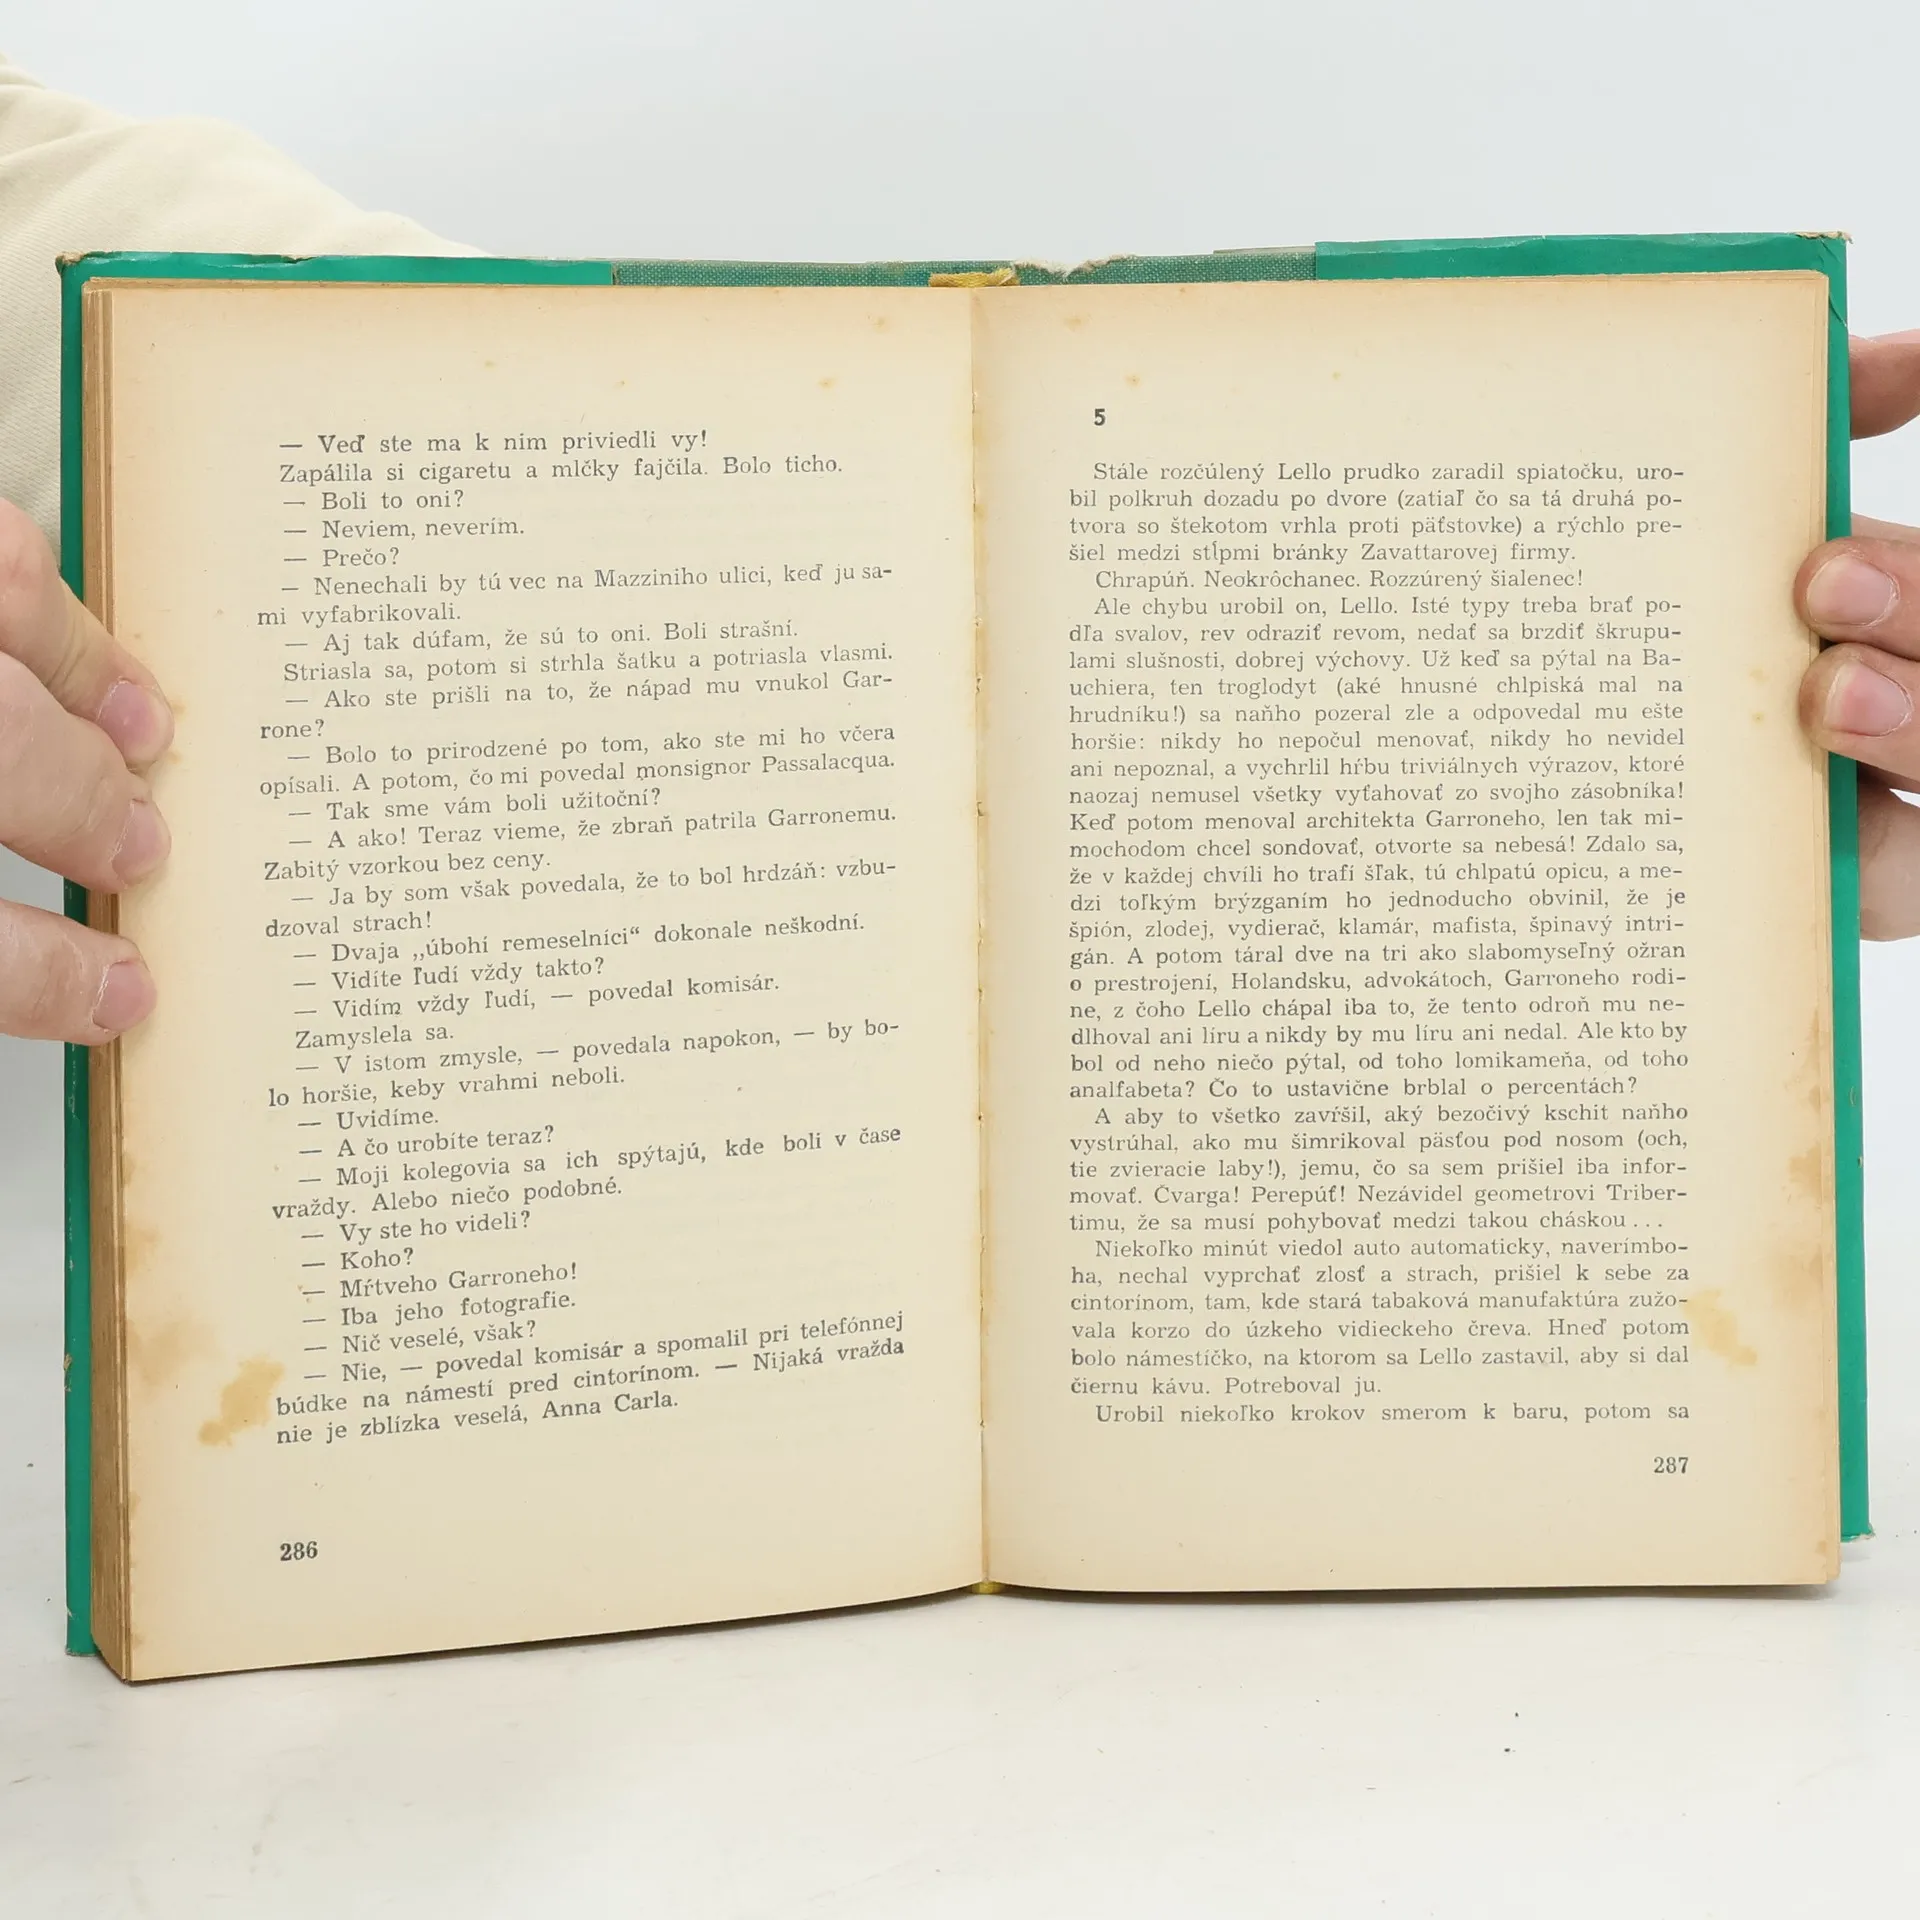 — Veď ste ma k nim priviedli vy!
Zapálila si cigaretu a mlčky fajčila. Bolo ticho.
— Boli to oni?
— Neviem, neverím.
— Prečo?
— Nenechali by tú vec na Mazziniho ulici, keď ju sa-
mi vyfabrikovali.
— Aj tak dúfam, že sú to oni. Boli strašní.
Striasla sa, potom si strhla šatku a potriasla vlasmi.
— Ako ste prišli na to, že nápad mu vnukol Gar-
rone?
— Bolo to prirodzené po tom, ako ste mi ho včera
opísali. A potom, čo mi povedal monsignor Passalacqua.
— Tak sme vám boli užitoční?
— A ako! Teraz vieme, že zbraň patrila Garronemu.
Zabitý vzorkou bez ceny.
— Ja by som však povedala, že to bol hrdzáň: vzbu-
dzoval strach!
— Dvaja „úbohí remeselníci“ dokonale neškodní.
— Vidíte ľudí vždy takto?
— Vidím vždy ľudí, — povedal komisár.
Zamyslela sa.
— V istom zmysle, — povedala napokon, — by bo-
lo horšie, keby vrahmi neboli.
— Uvidíme.
— A čo urobíte teraz?
— Moji kolegovia sa ich spýtajú, kde boli v čase
vraždy. Alebo niečo podobné.
— Vy ste ho videli?
— Koho?
— Mŕtveho Garroneho!
— Iba jeho fotografie.
— Nič veselé, však?
— Nie, — povedal komisár a spomalil pri telefónnej
búdke na námestí pred cintorínom. — Nijaká vražda
nie je zblízka veselá, Anna Carla.
286
5
Stále rozčúlený Lello prudko zaradil spiatočku, uro-
bil polkruh dozadu po dvore (zatiaľ čo sa tá druhá po-
tvora so štekotom vrhla proti päťstovke) a rýchlo pre-
šiel medzi stĺpmi bránky Zavattarovej firmy.
Chrapúň. Neokrôchanec. Rozzúrený šialenec!
Ale chybu urobil on, Lello. Isté typy treba brať po-
dľa svalov, rev odraziť revom, nedať sa brzdiť škrupu-
lami slušnosti, dobrej výchovy. Už keď sa pýtal na Ba-
uchiera, ten troglodyt (aké hnusné chlpiská mal na
hrudníku!) sa naňho pozeral zle a odpovedal mu ešte
horšie: nikdy ho nepočul menovať, nikdy ho nevidel
ani nepoznal, a vychrlil hŕbu triviálnych výrazov, ktoré
naozaj nemusel všetky vyťahovať zo svojho zásobníka!
Keď potom menoval architekta Garroneho, len tak mi-
mochodom chcel sondovať, otvorte sa nebesá! Zdalo sa,
že v každej chvíli ho trafí šľak, tú chlpatú opicu, a me-
dzi toľkým brýzganím ho jednoducho obvinil, že je
špión, zlodej, vydierač, klamár, mafista, špinavý intri-
gán. A potom táral dve na tri ako slabomyseľný ožran
o prestrojení, Holandsku, advokátoch, Garroneho rodi-
ne, z čoho Lello chápal iba to, že tento odroň mu ne-
dlhoval ani líru a nikdy by mu líru ani nedal. Ale kto by
bol od neho niečo pýtal, od toho lomikameňa, od toho
analfabeta? Čo to ustavične brblal o percentách?
A aby to všetko zavŕšil, aký bezočivý kschit naňho
vystrúhal, ako mu šimrikoval päsťou pod nosom (och,
tie zvieracie laby!), jemu, čo sa sem prišiel iba infor-
movať. Čvarga! Perepúť! Nezávidel geometrovi Triber-
timu, že sa musí pohybovať medzi takou cháskou...
Niekoľko minút viedol auto automaticky, naverímbo-
ha, nechal vyprchať zlosť a strach, prišiel k sebe za
cintorínom, tam, kde stará tabaková manufaktúra zužo-
vala korzo do úzkeho vidieckeho čreva. Hneď potom
bolo námestíčko, na ktorom sa Lello zastavil, aby si dal
čiernu kávu. Potreboval ju.
Urobil niekoľko krokov smerom k baru, potom sa
287